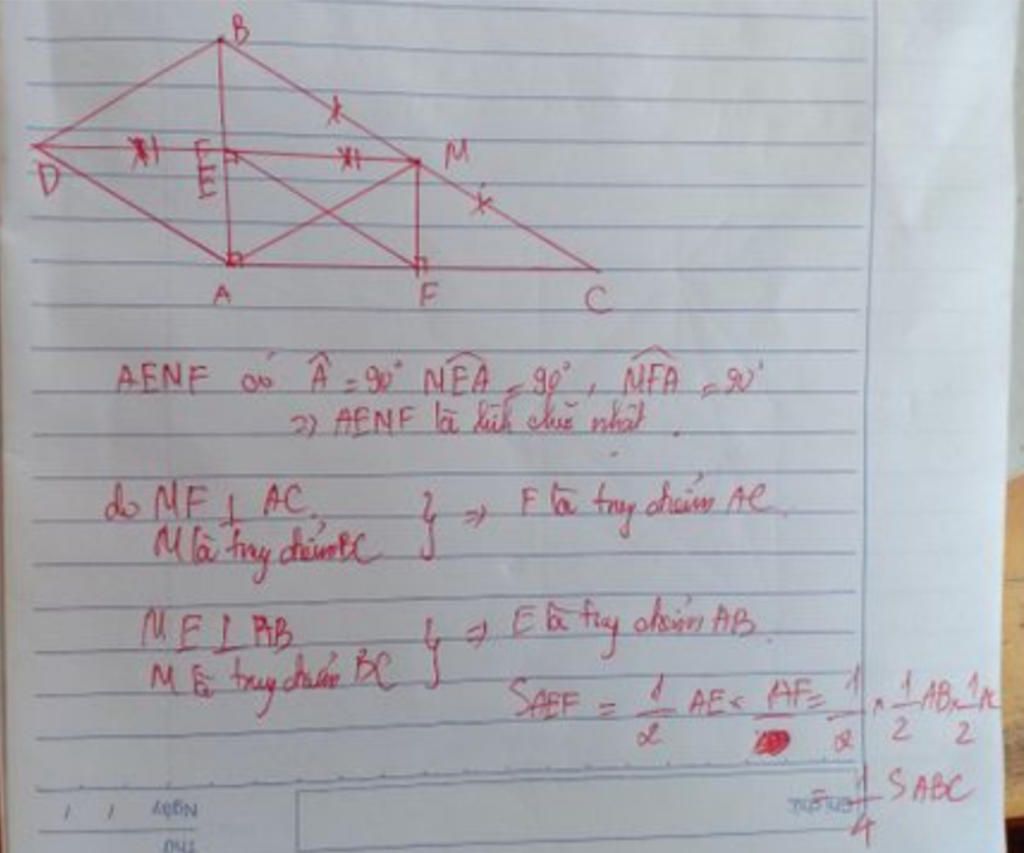 B
D
E
M
A
F
C
AEMF có Â = 90° MÊA = 90°, MF̂A = 90°
=> AEMF là hình chữ nhật.
do MF ⊥ AC
M là trung điểm BC } => F là trung điểm AC.
ME ⊥ AB
M là trung điểm BC } => E là trung điểm AB.
S AEF = 1/2 AE × AF = 1/2 × 1/2 AB × 1/2 AC
= 1/4 S ABC
Ngày / /
Thứ